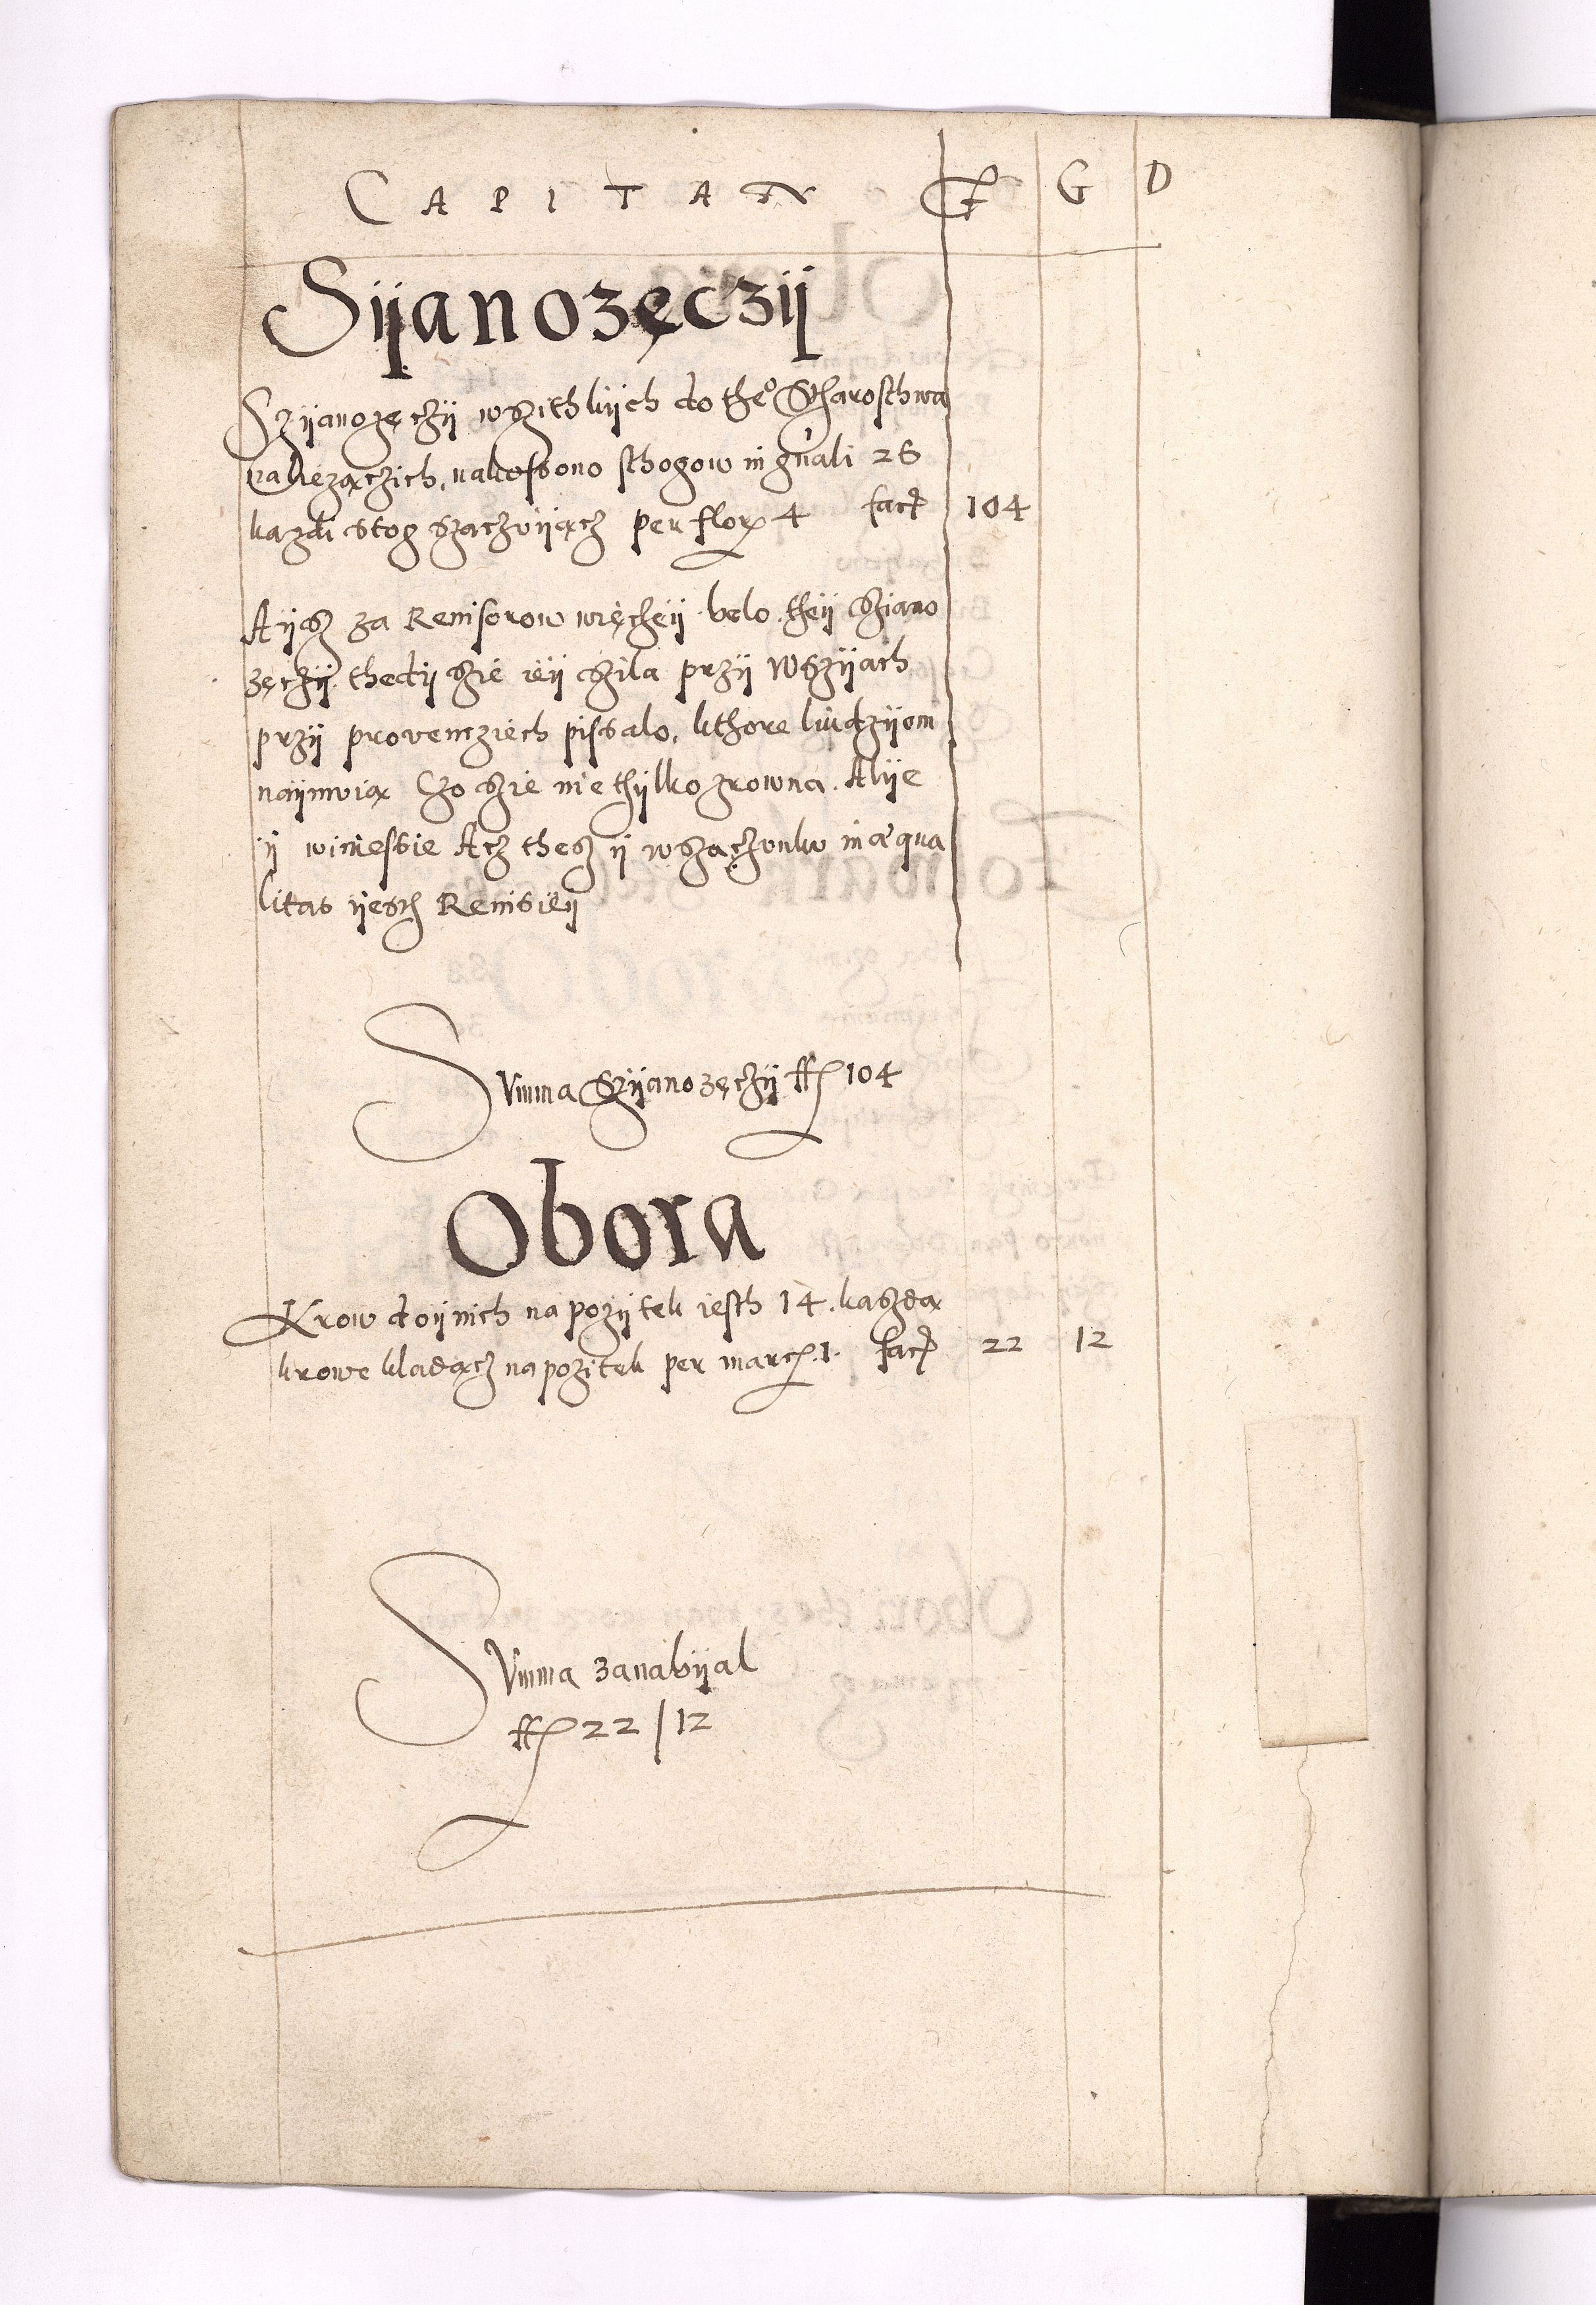 CAPITA F G D
Sijanozęczij
Szijanozęczij wszithkijch do the° Stharosthwa
nalezączich, nakossono sthogow in gn̄ali 26
kazdi stog szaczuijącz per flor 4 fac̄ 104
Aijsz za Reuisorow więczeij belo theij sziano
zęczij thedij szie ieij szila przij Wszijach
przij prouencziech pissalo, kthore liudzijom
naijmvią Czo szie nie thijlko zrowna. Alije
ij winiessie Acz thesz ij wszaczvnkv in æqua
litas ijesth Reuisieij
Svmma Szijanozęczij ff 104
Obora
Krow doijnich na pozijtek iesth 14. kaszdą
krowe kladącz na pozitek per marc. 1. fac̄ 22 12
Svmma zanabijal
ff 22 / 12